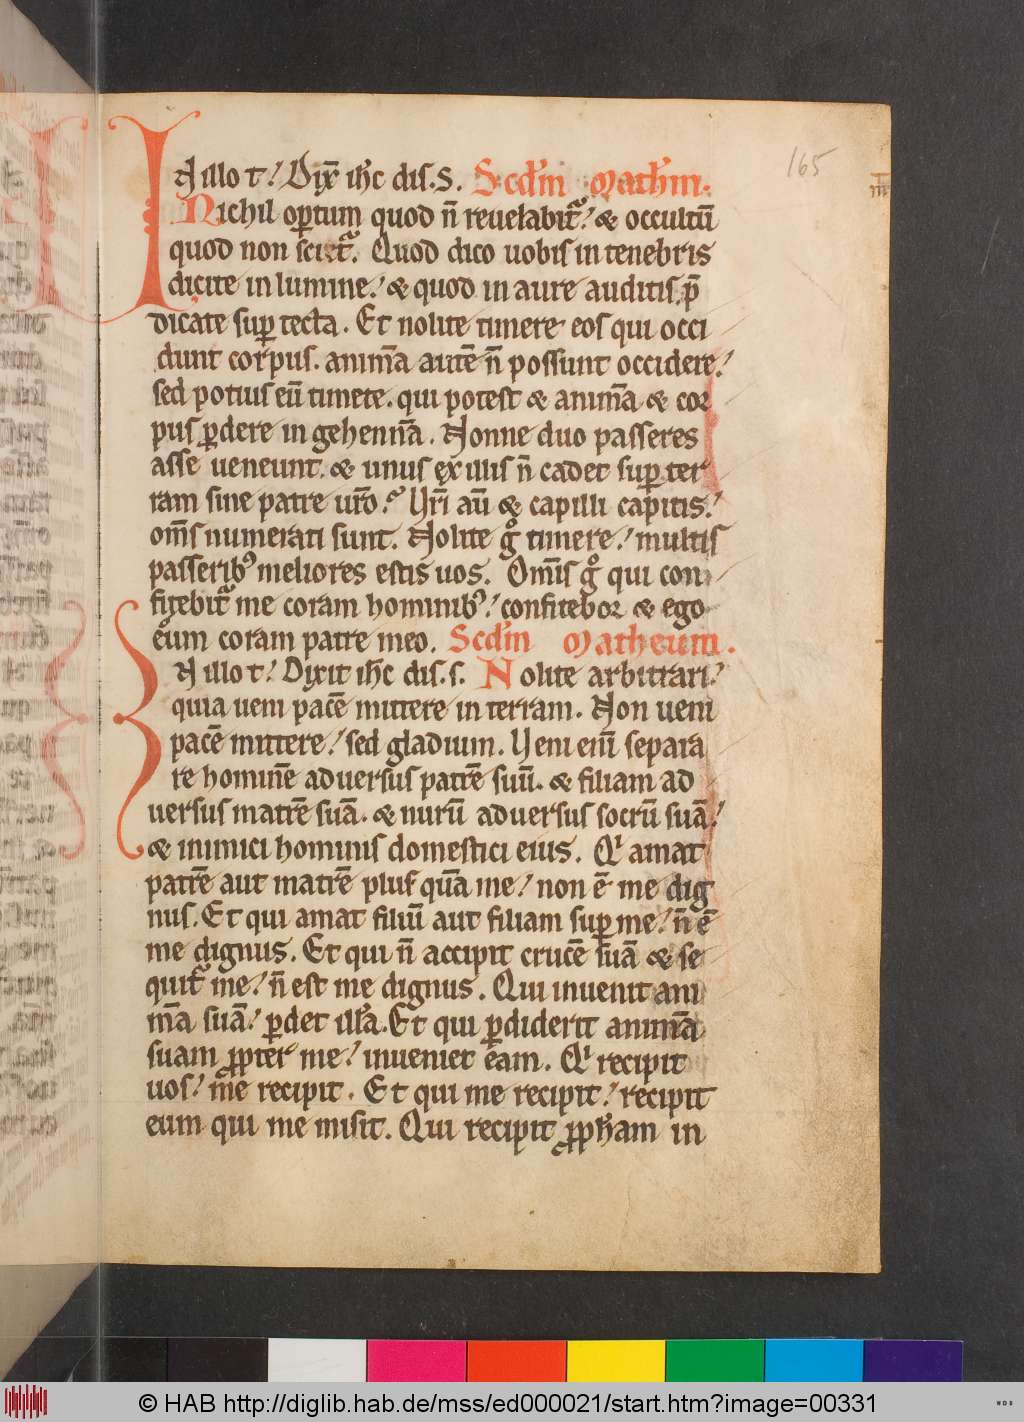 165
IN illo t̄. Dix̄ ih̄c dis. s. Scdm̄ Math̄m.
Nichil op̄tum quod n̄ reuelabit̄. & occultū
quod non sciet̄. Quod dico uobis in tenebris
dicite in lumine. & quod in aure auditis. p̄
dicate sup̄ tecta. Et nolite timere eos qui occi
dunt corpus. anim̄a autē n̄ possunt occidere.
sed potius eū timete. qui potest & anim̄a & cor
pus p̄dere in gehenn̄a. Nonne duo passeres
asse ueneunt. & unus ex illis n̄ cadet sup̄ ter
ram sine patre ur̄o. Ur̄i aū & capilli capitis.
om̄s numerati sunt. Nolite gͦ timere. multis
passerib⁹ meliores estis uos. Om̄is gͦ qui con
fitebit̄ me coram hominib⁹. confitebor & ego
eum coram patre meo. Scdm̄ Matheum.
IN illo t̄. Dixit ih̄c dis. s. Nolite arbitrari.
quia ueni pacē mittere in terram. Non ueni
pacē mittere. sed gladium. Ueni enī separa
re hominē aduersus patrē suū. & filiam ad
uersus matrē suā. & nurū aduersus socrū suā.
& inimici hominis domestici eius. Qi amat
patrē aut matrē plus quā me. non ē me dig
nus. Et qui amat filiū aut filiam sup̄ me. n̄ ē
me dignus. Et qui n̄ accipit crucē suā & se
quit̄ me. n̄ est me dignus. Qui inuenit ani
m̄a suā. p̄det ill̄a. Et qui p̄diderit anim̄a
suam p̄pter me. inueniet eam. Qi recipit
uos. me recipit. Et qui me recipit. recipit
eum qui me misit. Qui recipit p̄ph̄am in
© HAB http://diglib.hab.de/mss/ed000021/start.htm?image=00331